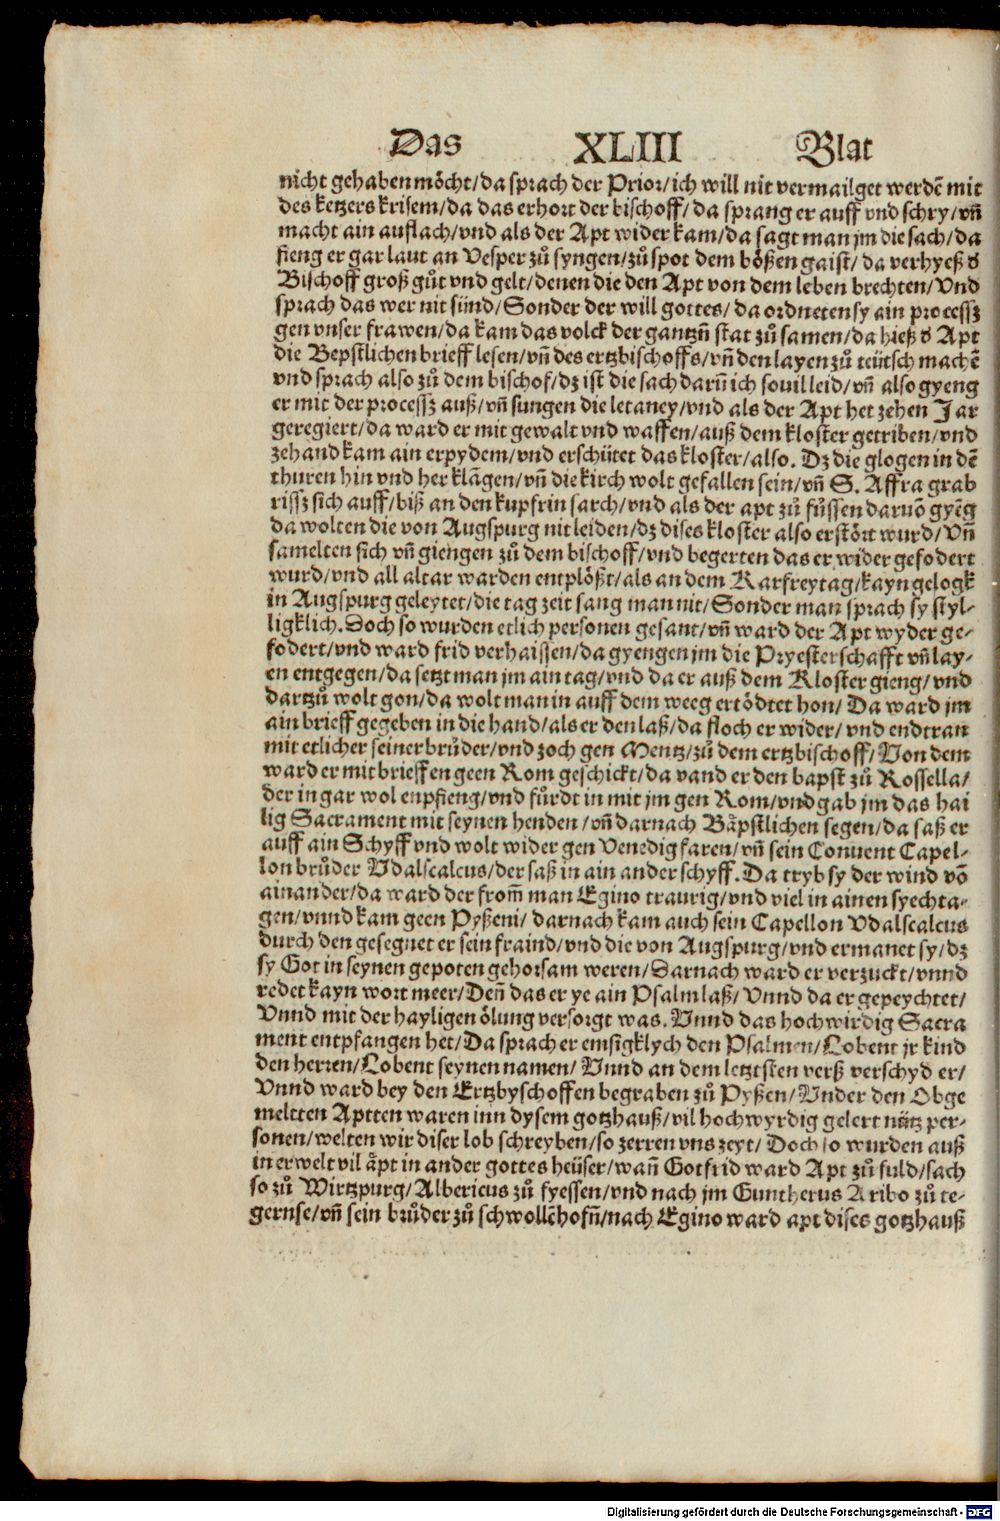 Das XLIII Blat
nicht gehaben möcht/da sprach der Prior/ich will nit vermailget werdē mit
des ketzers krisem/da das erhort der bischoff/da sprang er auff vnd schry/vn̄
macht ain auflach/vnd als der Apt wider kam/da sagt man jm die sach/da
fieng er gar laut an Vesper zů syngen/zů spot dem bößen gaist/da verhyeß d
Bischoff groß gůt vnd gelt/denen die den Apt von dem leben brechten/Vnd
sprach das wer nit sünd/Sonder der will gottes/da ordneten sy ain processz
gen vnser frawen/da kam das volck der gantzn̄ stat zů samen/da hieß d Apt
die Bepstlichen brieff lesen/vn̄ des ertzbischoffs/vn̄ den layen zů teütsch machē
vnd sprach also zů dem bischof/dz ist die sach darū ich souil leid/vn̄ also gyeng
er mit der processz auß/vn̄ sungen die letaney/vnd als der Apt het zehen Jar
geregiert/da ward er mit gewalt vnd waffen/auß dem kloster getriben/vnd
zehand kam ain erpydem/vnd erschütet das kloster/also. Dz die glogen in dē
thuren hin vnd her klāgen/vn̄ die kirch wolt gefallen sein/vn̄ S. Affra grab
rissz sich auff/biß an den kupfrin sarch/vnd als der apt zů fůssen daruō gyēg
da wolten die von Augspurg nit leiden/dz dises kloster also erstört wurd/Vn̄
samelten sich vn̄ giengen zů dem bischoff/vnd begerten das er wider gefodert
wurd/vnd all altar warden entplößt/als an dem Karfreytag/kayn gelogk
in Augspurg geleytet/die tag zeit sang man nit/Sonder man sprach sy styl-
ligklich. Doch so wurden etlich personen gesant/vn̄ ward der Apt wyder ge-
fodert/vnd ward frid verhaissen/da gyengen jm die Pryesterschafft vn̄ lay-
en entgegen/da setzt man jm ain tag/vnd da er auß dem Kloster gieng/vnd
dartzů wolt gon/da wolt man in auff dem weeg ertödtet hon/ Da ward jm
ain brieff gegeben in die hand/als er den laß/da floch er wider/ vnd endtran
mit etlicher seiner brůder/vnd zoch gen Mentz/zů dem ertzbischoff/Von dem
ward er mit brieffen geen Rom geschickt/da vand er den bapst zů Rossella/
der in gar wol enpfieng/vnd fůrdt in mit jm gen Rom/vnd gab jm das hai
lig Sacrament mit seynen henden/vn̄ darnach Bäpstlichen segen/da saß er
auff ain Schyff vnd wolt wider gen Venedig faren/vn̄ sein Conuent Capel-
lon brůder Vdalscalcus/der saß in ain ander schyff. Da tryb sy der wind vō
ainander/da ward der from̄ man Egino traurig/vnd viel in ainen syechta-
gen/vnnd kam geen Pyßeni/ darnach kam auch sein Capellon Vdalscalcus
durch den gesegnet er sein fraind/vnd die von Augspurg/vnd ermanet sy/dz
sy Got in seynen gepoten gehorsam weren/Darnach ward er verzuckt/vnnd
redet kayn wort meer/Den̄ das er ye ain Psalm laß/Vnnd da er gepeychtet/
Vnnd mit der hayligen ölung versorgt was. Vnnd das hochwirdig Sacra
ment entpfangen het/Da sprach er emsigklych den Psalmen/Lobent jr kind
den herren/Lobent seynen namen/Vnnd an dem letztsten verß verschyd er/
Vnnd ward bey den Ertzbyschoffen begraben zů Pyßen/Vnder den Obge
meltten Aptten waren inn dysem gotzhauß/vil hochwyrdig gelert nütz per-
sonen/welten wir diser lob schreyben/so zerren vns zeyt/ Doch so wurden auß
in erwelt vil äpt in ander gottes heüser/wan̄ Gotfrid ward Apt zů fuld/sach
so zů Wirtzpurg/Albericus zů fyessen/vnd nach jm Guntherus Aribo zů te-
gernse/vn̄ sein brůder zů schwollēhofn̄/nach Egino ward apt dises gotzhauß
Digitalisierung gefördert durch die Deutsche Forschungsgemeinschaft - DFG